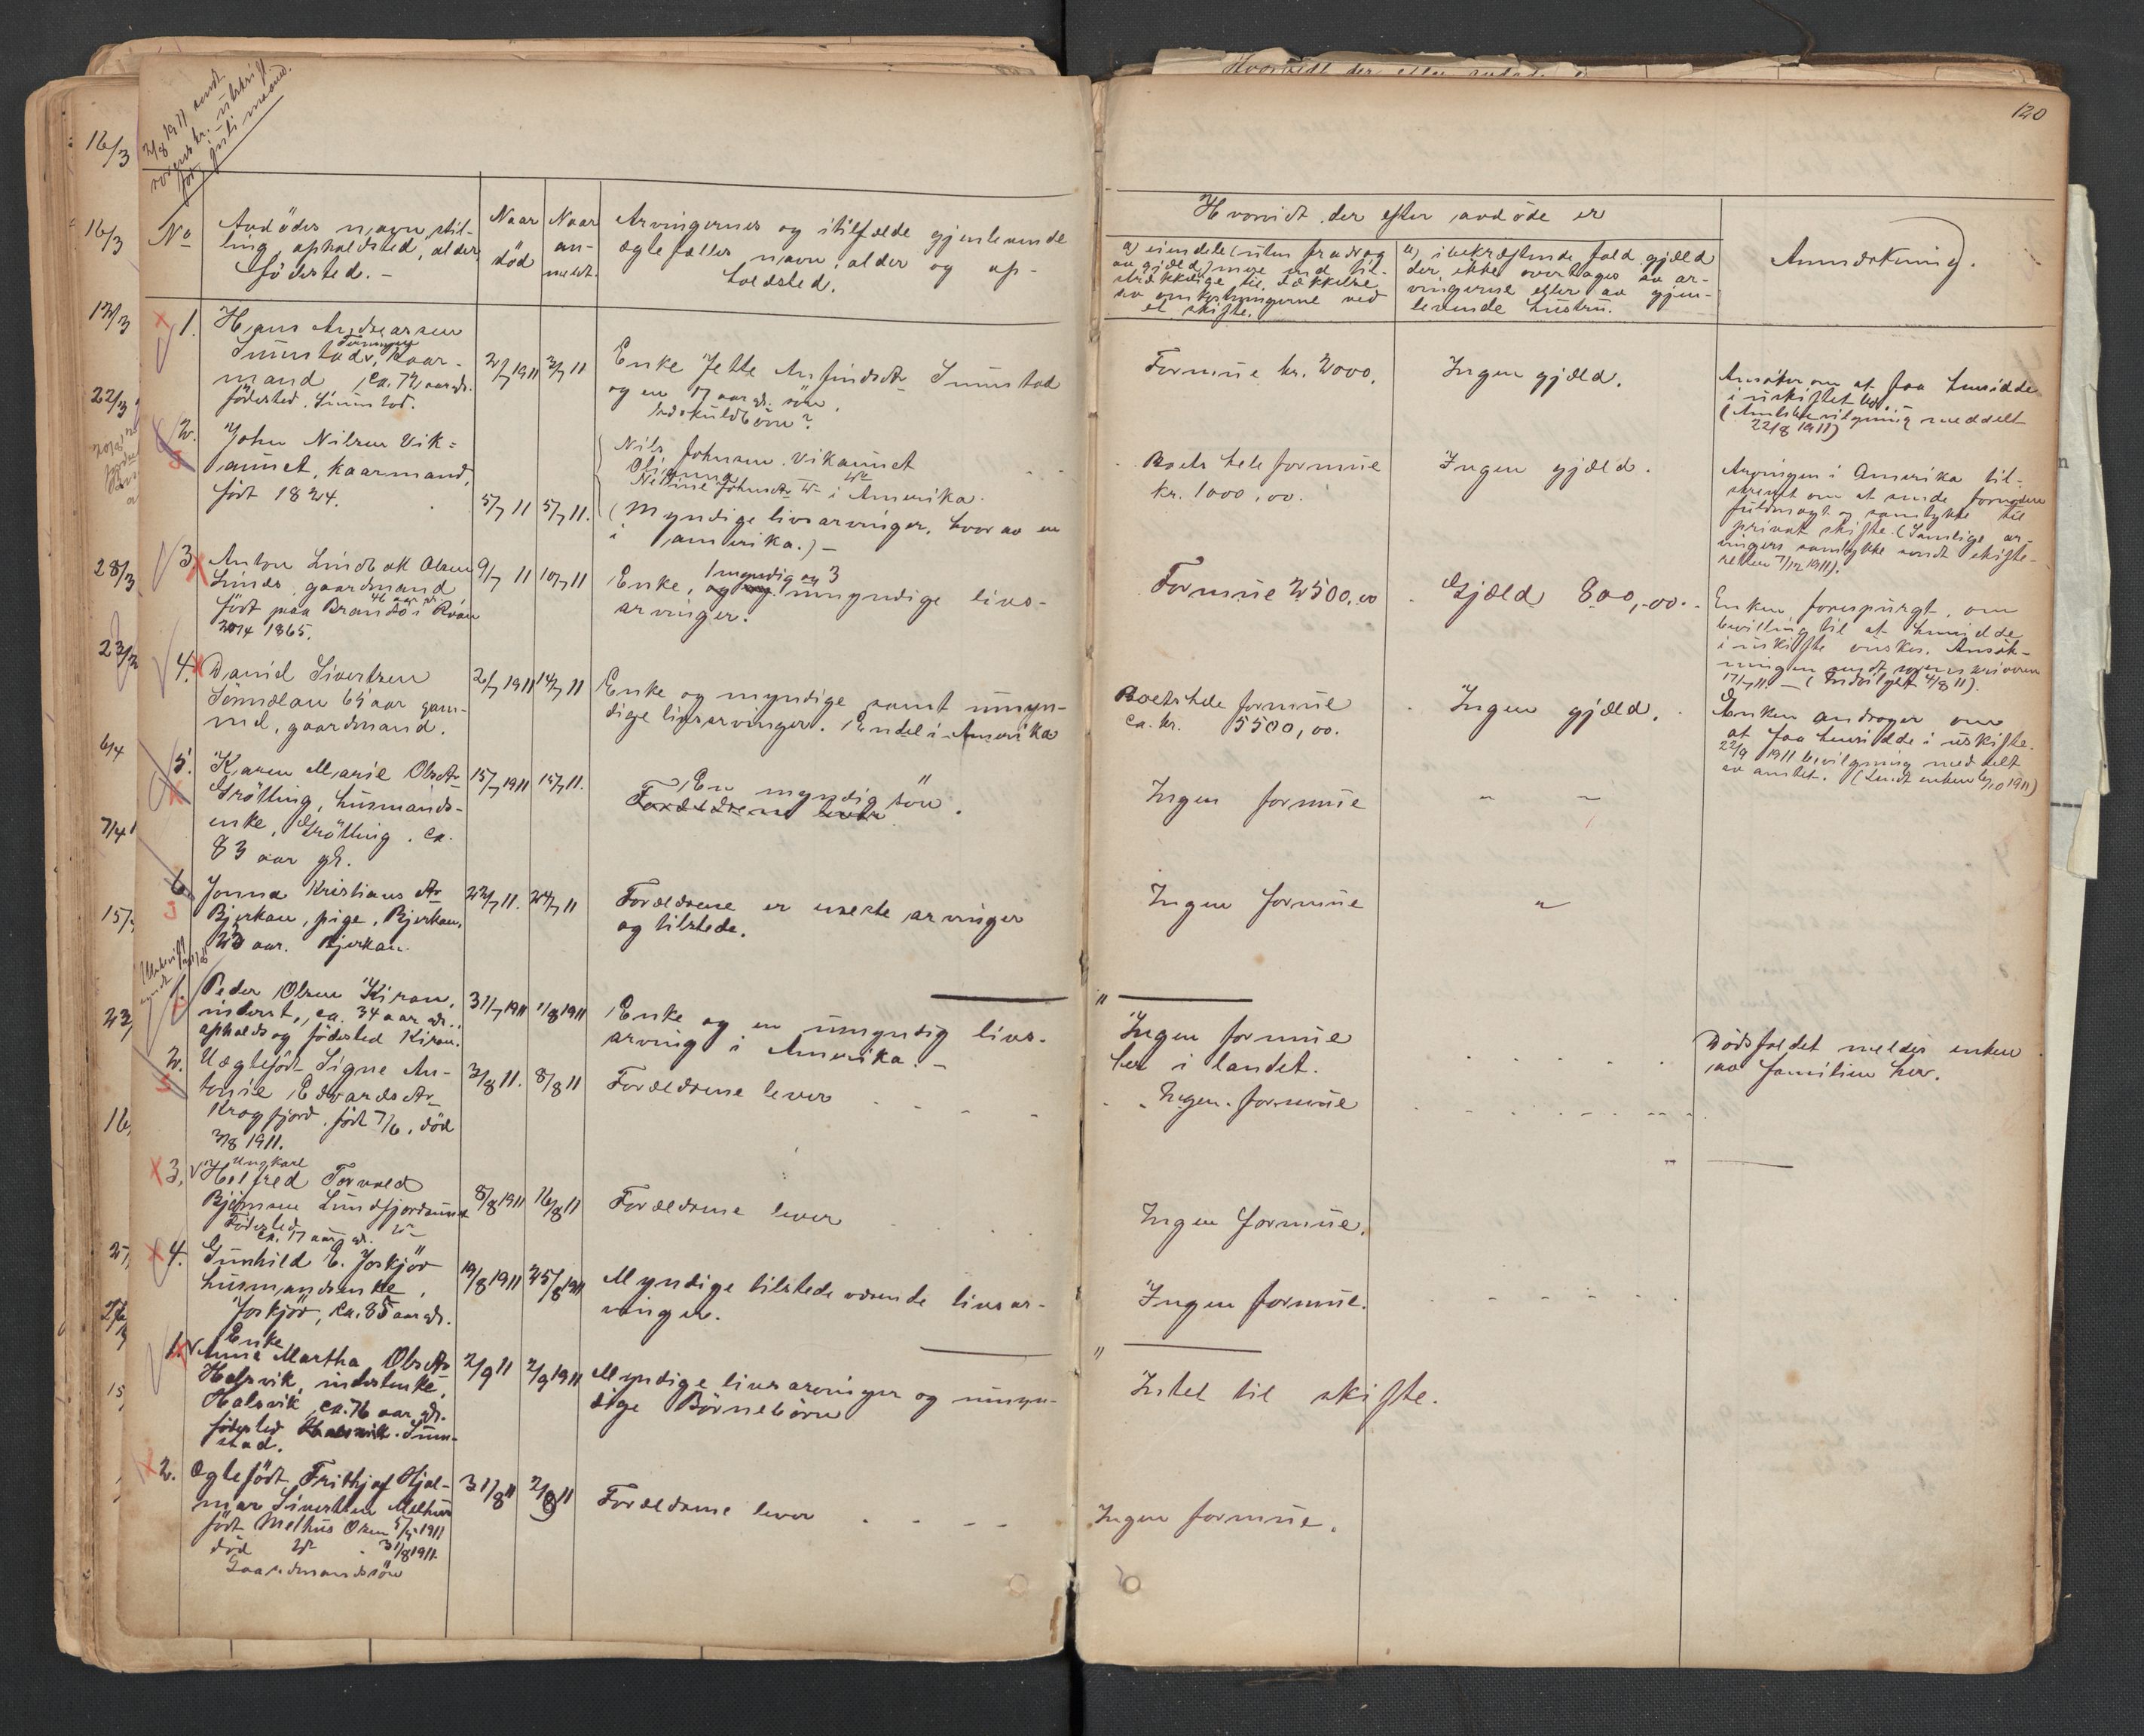 2/8 1911 sendt
sorenskr. utskrift
for juli maaned.
120
No
Avdødes navn, stil-
ling, opholdssted, alder,
fødested. -
Naar
død
Naar
an-
meldt.
Arvingernes og i tilfælde gjenlevende
ægtefælles navn, alder og op-
holdssted.
Hvorvidt der efter avdøde er
a) eiendele (uten fradrag
av gjæld) mere end til-
strækkelige til dækkelse
av omkostningerne ved
et skifte.
b) i bekræftende fald gjæld
der ikke overtages av ar-
vingerne eller av gjen-
levende hustru.
Anmerkning.
1. Hans Andreassen
Sunstad, kaar-
mand, ca. 72 aar gl.
fødested Sunstad.
2/7 1911
3/7 11
Enke Jette Anfindsdtr Sunstad
og en 17 aar gl. søn.
Indskuldbørn?
Formue kr. 2000.
Ingen gjæld.
Ansøker om at faa hensidde
i uskiftet bo.
(Amtsbevilgning meddelt
22/8 1911)
2. John Nilsen Vik-
aunet, kaarmand,
født 1824.
5/7 11
5/7 11.
Nils Johnsen Vikaunet
Nelsine Johnsdtr i Amerika.
(Myndige livsarvinger, hvorav en
i Amerika.) -
Boets hele formue
kr. 1000,00.
Ingen gjæld.
Arvingen i Amerika til-
skrevet om at sende fornøden
fuldmagt og samtykke til
privat skifte. (Samtlige ar-
vingers samtykke sendt skifte-
retten 7/12 1911).
3. Anton Lindbak Olsen
Linds gaardmand
46 aar gl.
født paa Brandsø i Roan
20/4 1865.
9/7 11
10/7 11
1 myndig og 3
Enke, umyndige livs-
arvinger.
Formue 2500,00
Gjæld 800,00.
Enken forespurgt om
bevilling til at hensidde
i uskifte ønskes. Ansøk-
ningen sendt sorenskriveren
17/7 11. - (Indvilget 4/8 11).
4. Daniel Sivertsen
Sørmelan 65 aar gam-
mel, gaardmand.
2/7 1911
14/7 11
Enke og myndige samt umyn-
dige livsarvinger. Endel i Amerika
Boets hele formue
ca. kr. 5500,00.
Ingen gjæld.
Enken andrager om
at faa hensidde i uskifte.
22/9 1911 bevilgning meddelt
av amtet. (Sendt enken 6/10 1911)
5. Karen Marie Olsdtr
Grøtting, husmands-
enke, Grøtting. ca.
83 aar gl.
15/7 1911
15/7 11.
En myndig søn.
Forældrene lever
Ingen formue
" "
6 Jonna Kristiansdtr
Bjerkan, pige, Bjerkan,
23 aar. Bjerkan.
22/7 11.
24/7 11
Forældrene er eneste arvinger
og tilstede.
Ingen formue
"
Utskrift
sendt
1. Peder Olsen Kiran,
inderst, ca. 34 aar gl.
opholds og fødested Kiran.
31/7 1911
1/8 1911
Enke og en umyndig livs-
arving i Amerika. -
Ingen formue
her i landet.
Dødsfaldet meldes enken
av familien her.
2. Uægtefødt Signe An-
tonie Edvardsdtr
Kragfjord. født 7/6, død
3/8 1911.
3/8 11.
8/8 11
Forældrene lever
Ingen formue
3. Ungkarl
Halfred Torvald
Bjørnsen Sundfjordaunet
Fødested
ca. 17 aar gl.
8/8 1911
16/8 11
Forældrene lever
Ingen formue.
4. Gunhild E. Joskjør
husmandsenke,
Joskjør, ca. 85 aar gl.
19/8 1911
25/8 1911
Myndige tilstedeværende livsar-
vinger.
Ingen formue.
1. Enke
Anna Martha Olsdtr
Halsvik, inderstenke,
Halsvik, ca. 76 aar gl.
fødested Sunn-
stad.
2/9 11
2/9 1911
Myndige livsarvinger og umyn-
dige Børnebørn
Intet til skifte.
2. Ægtefødt Frithjof Hjal-
mar Sivertsen Melhus
født Melhus Osen 5/5 1911
død 31/8 1911.
Gaardmandssøn
31/8 11
2/9 11
Forældrene lever
Ingen formue.